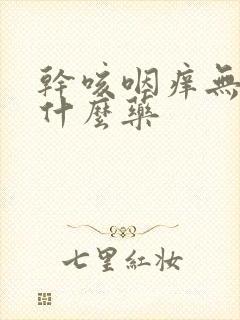 幹咳咽痒無
什麼藥
七里紅妝